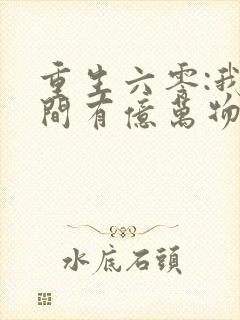 重生六零:我
間有億萬物
水底石頭